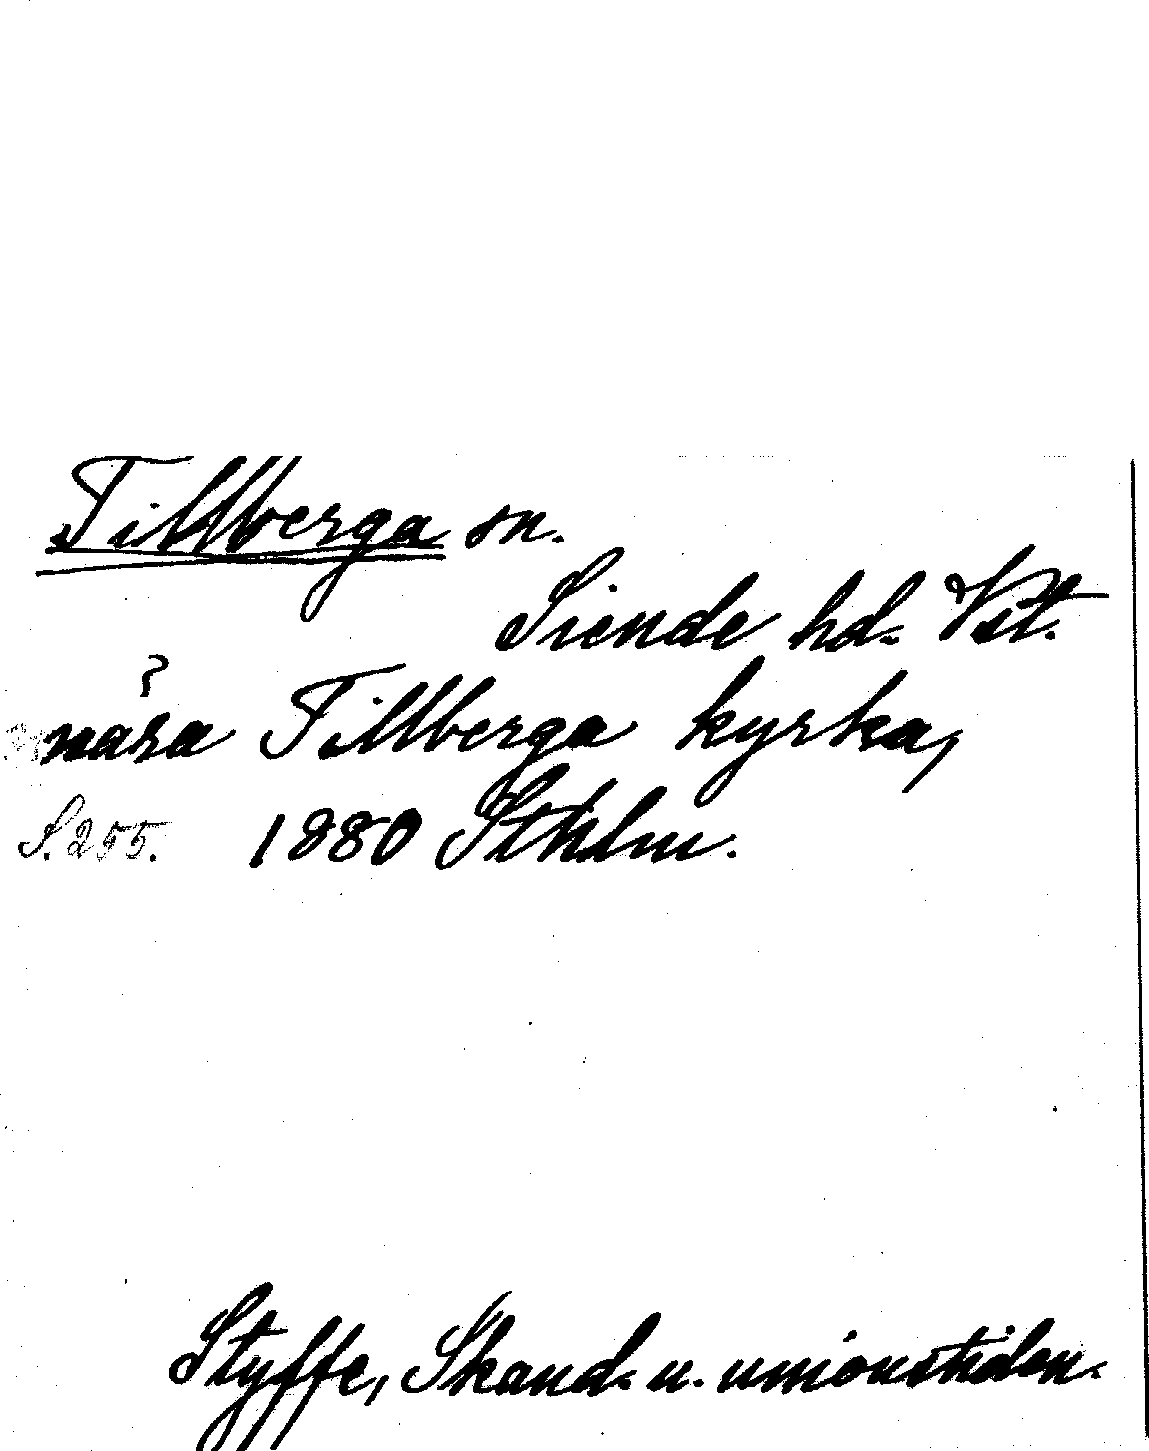 Tillberga sn.
Siende hd. Vst.
nära Tillberga kyrka,
S. 255. 1880 Sthlm.
Styffe, Skand. u. unionstiden.